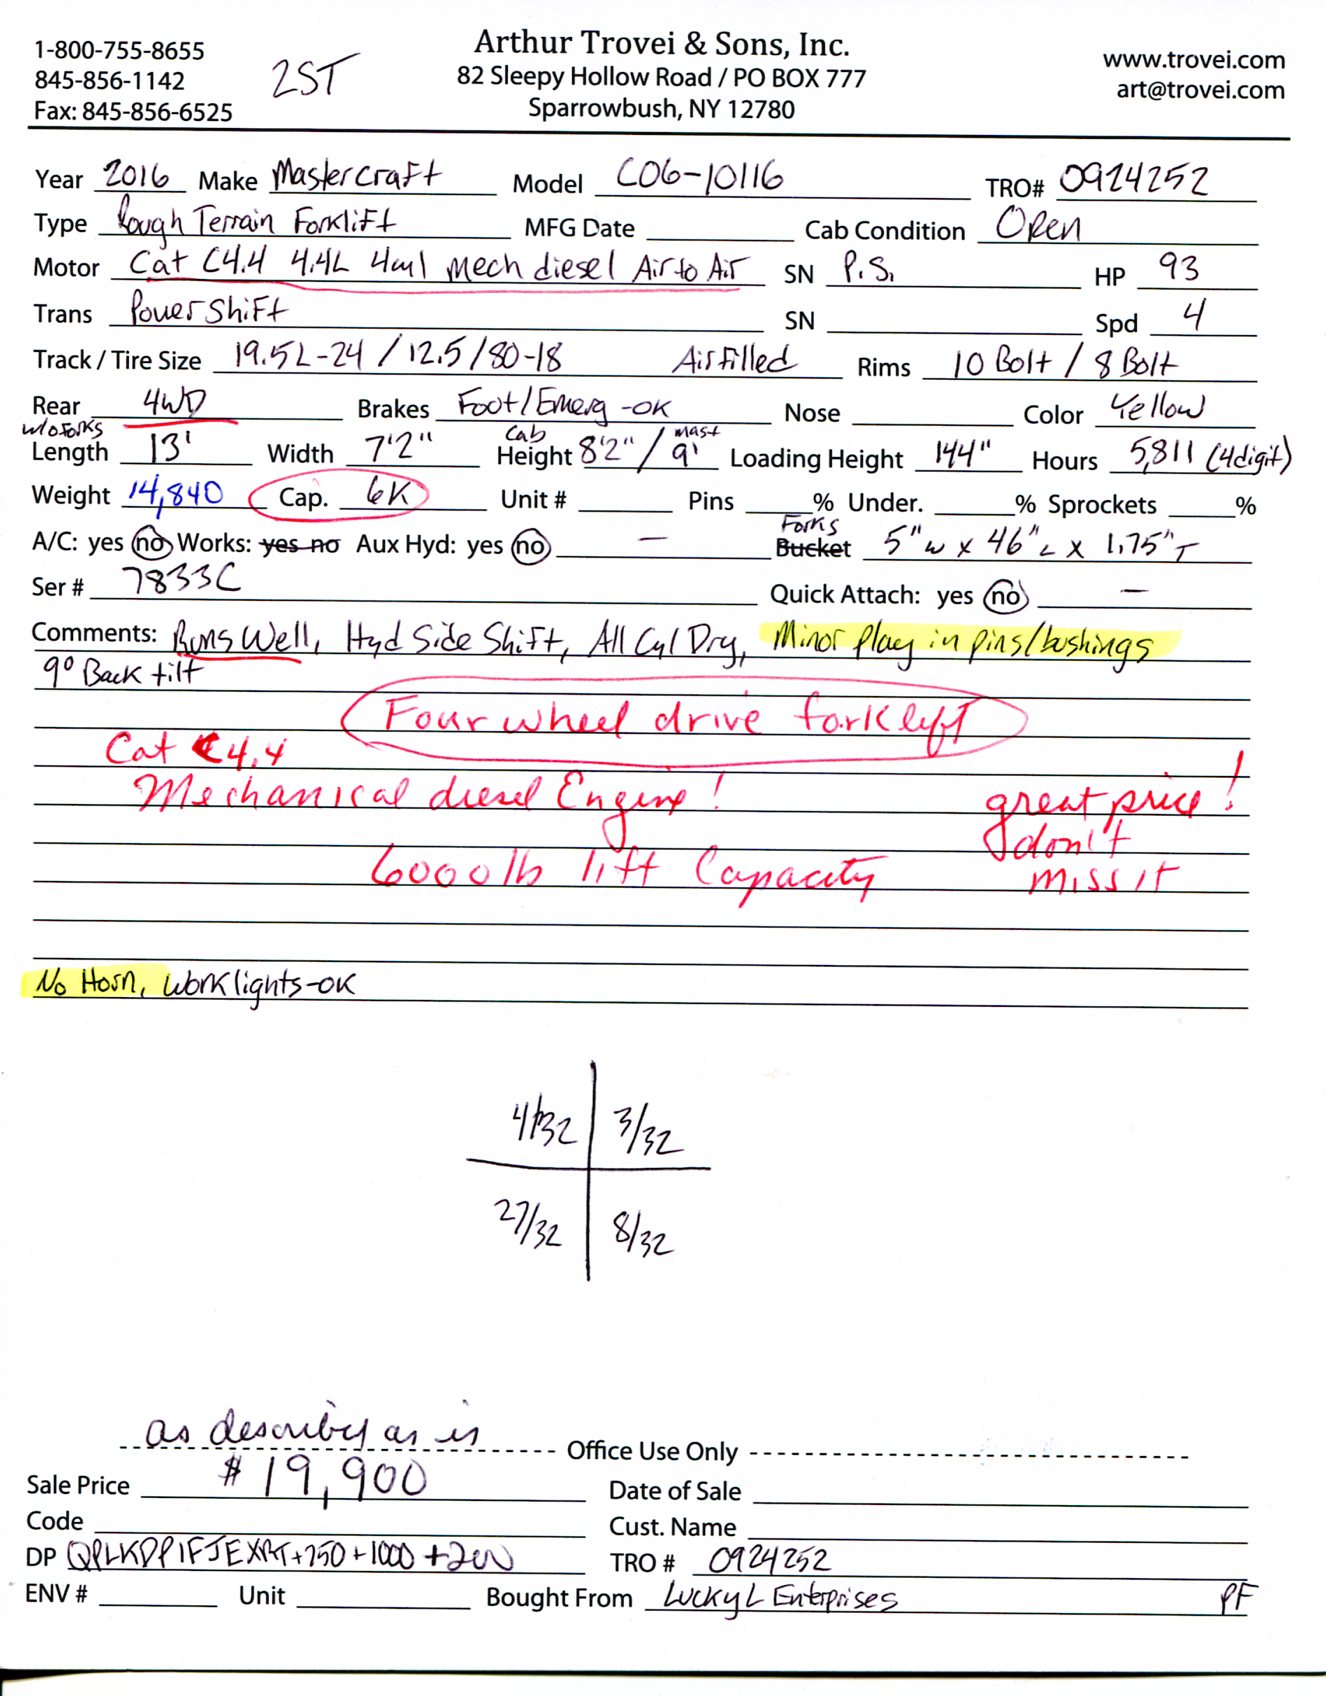 1-800-755-8655
845-856-1142
Fax: 845-856-6525
2ST
Arthur Trovei & Sons, Inc.
82 Sleepy Hollow Road / PO BOX 777
Sparrowbush, NY 12780
www.trovei.com
art@trovei.com
Year 2016 Make Mastercraft Model C06-10116 TRO# 0924252
Type Rough Terrain Forklift MFG Date Cab Condition Open
Motor Cat C4.4 4.4L 4cyl Mech diesel Air to Air SN P.S. HP 93
Trans Power Shift SN Spd 4
Track / Tire Size 19.5L-24 / 12.5/80-18 Air filled Rims 10 Bolt / 8 Bolt
Rear 4WD Brakes Foot/Emerg -OK Nose Color Yellow
w/o Forks Cab mast
Length 13' Width 7'2" Height 8'2" / 9' Loading Height 144" Hours 5,811 (4digit)
Weight 14,840 Cap. 6K Unit # Pins % Under. % Sprockets %
Forks
A/C: yes no Works: yes no Aux Hyd: yes no — Bucket 5"W x 46"L x 1.75"T
Ser # 7833C Quick Attach: yes no —
Comments: Runs Well, Hyd Side Shift, All Cyl Dry, Minor play in pins/bushings
9° Back tilt
Four wheel drive forklift
Cat C4.4
Mechanical diesel Engine!
great price!
don't
miss it
6000 lb lift Capacity
No Horn, Work lights-OK
4/32 3/32
27/32 8/32
as described as is
Office Use Only
Sale Price $19,900 Date of Sale
Code Cust. Name
DP +750+1000+200 TRO # 0924252
ENV # Unit Bought From Lucky L Enterprises PF